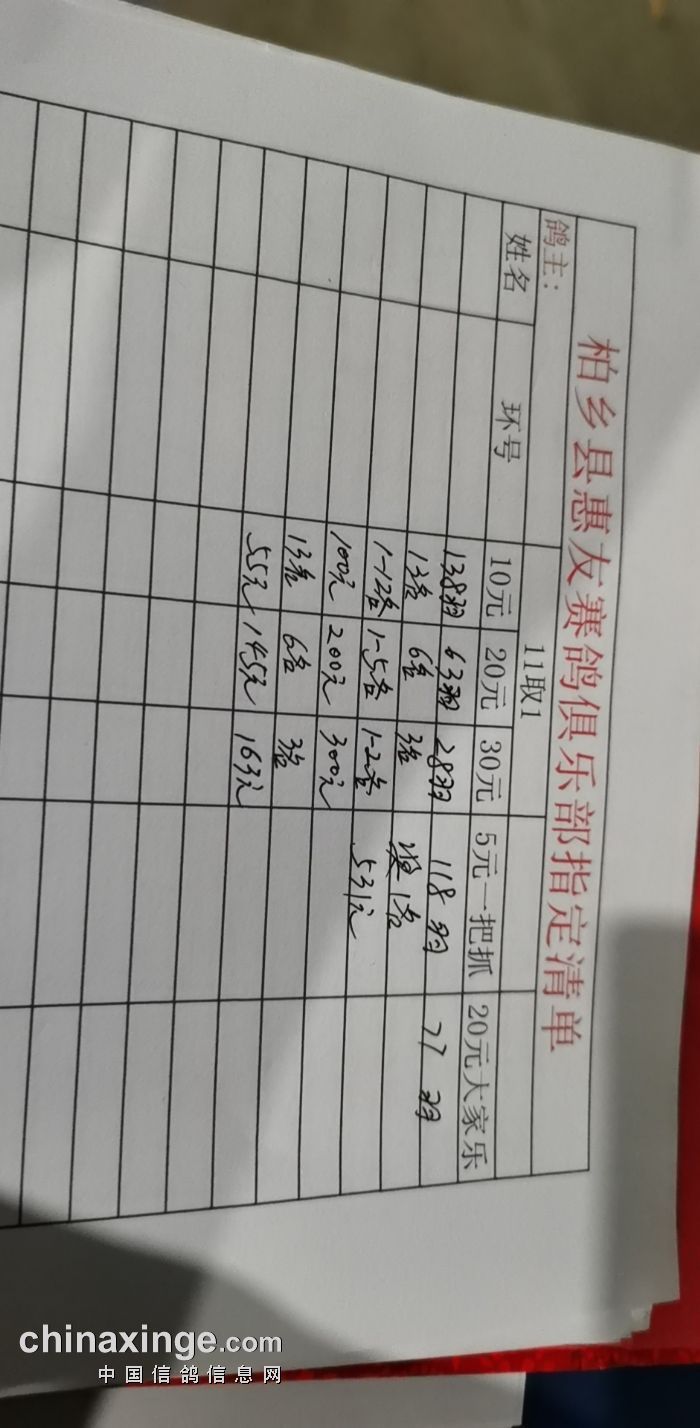 柏乡县惠友赛鸽俱乐部指定清单
鸽主:
11取1
姓名 环号 10元 20元 30元 5元一把抓 20元大家乐
138羽 63羽 28羽 118羽 77羽
13名 6名 3名 奖1名
1-12名 1-5名 1-2名 531元
100元 200元 300元
13名 6名 3名
55元 145元 163元
chinaxinge.com
中国信鸽信息网